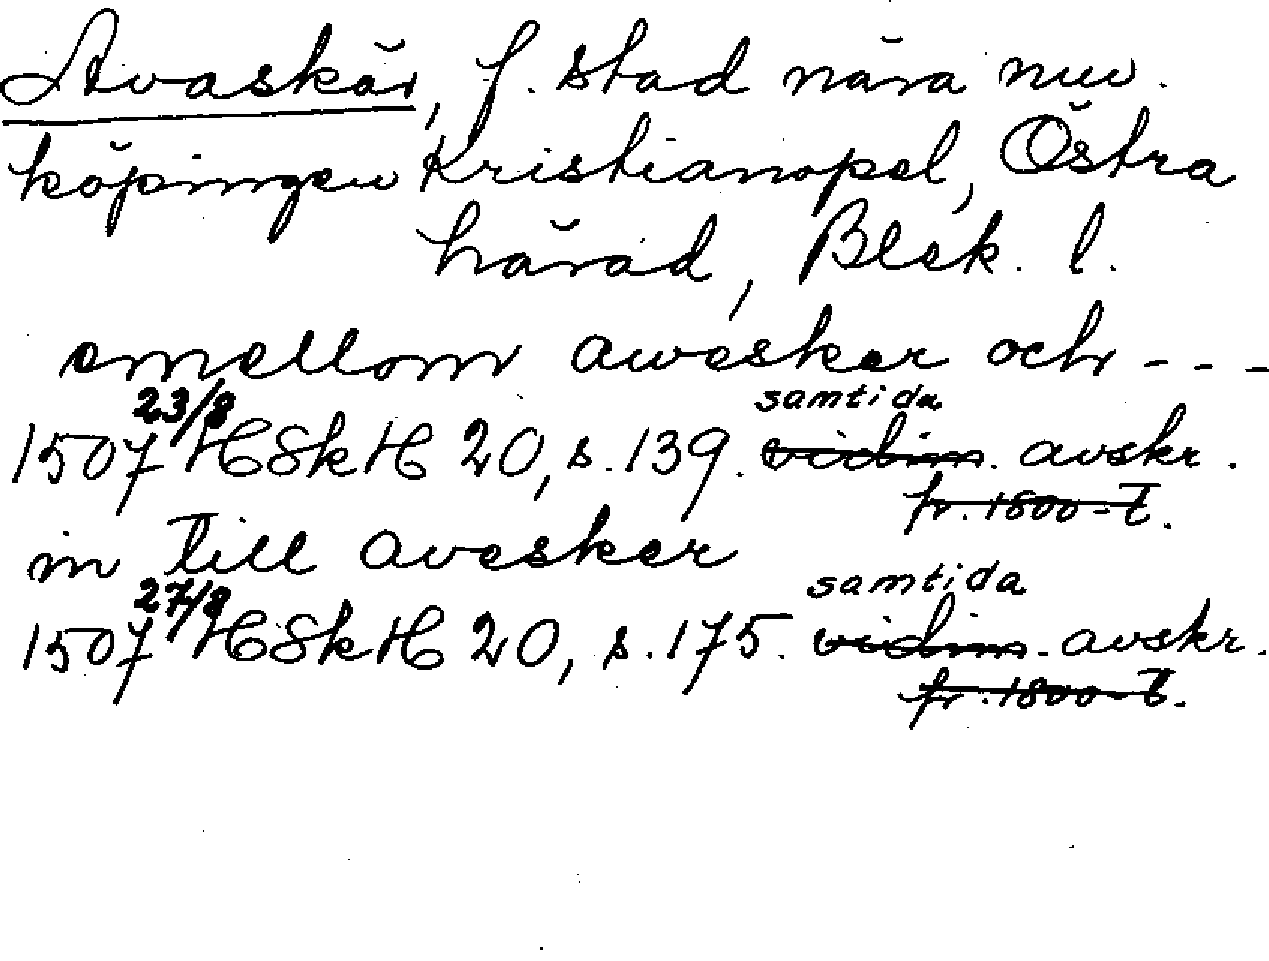 Avaskär, f. stad nära nuv.
köpingen Kristianopel, Östra
härad, Blek. l.
emellom awesker och - - -
1507 23/8 HSkH 20, s. 139. vidim. samtida avskr.
fr. 1800-t.
in till avesker
1507 27/8 HSkH 20, s. 175. vidim. samtida avskr.
fr. 1800-t.